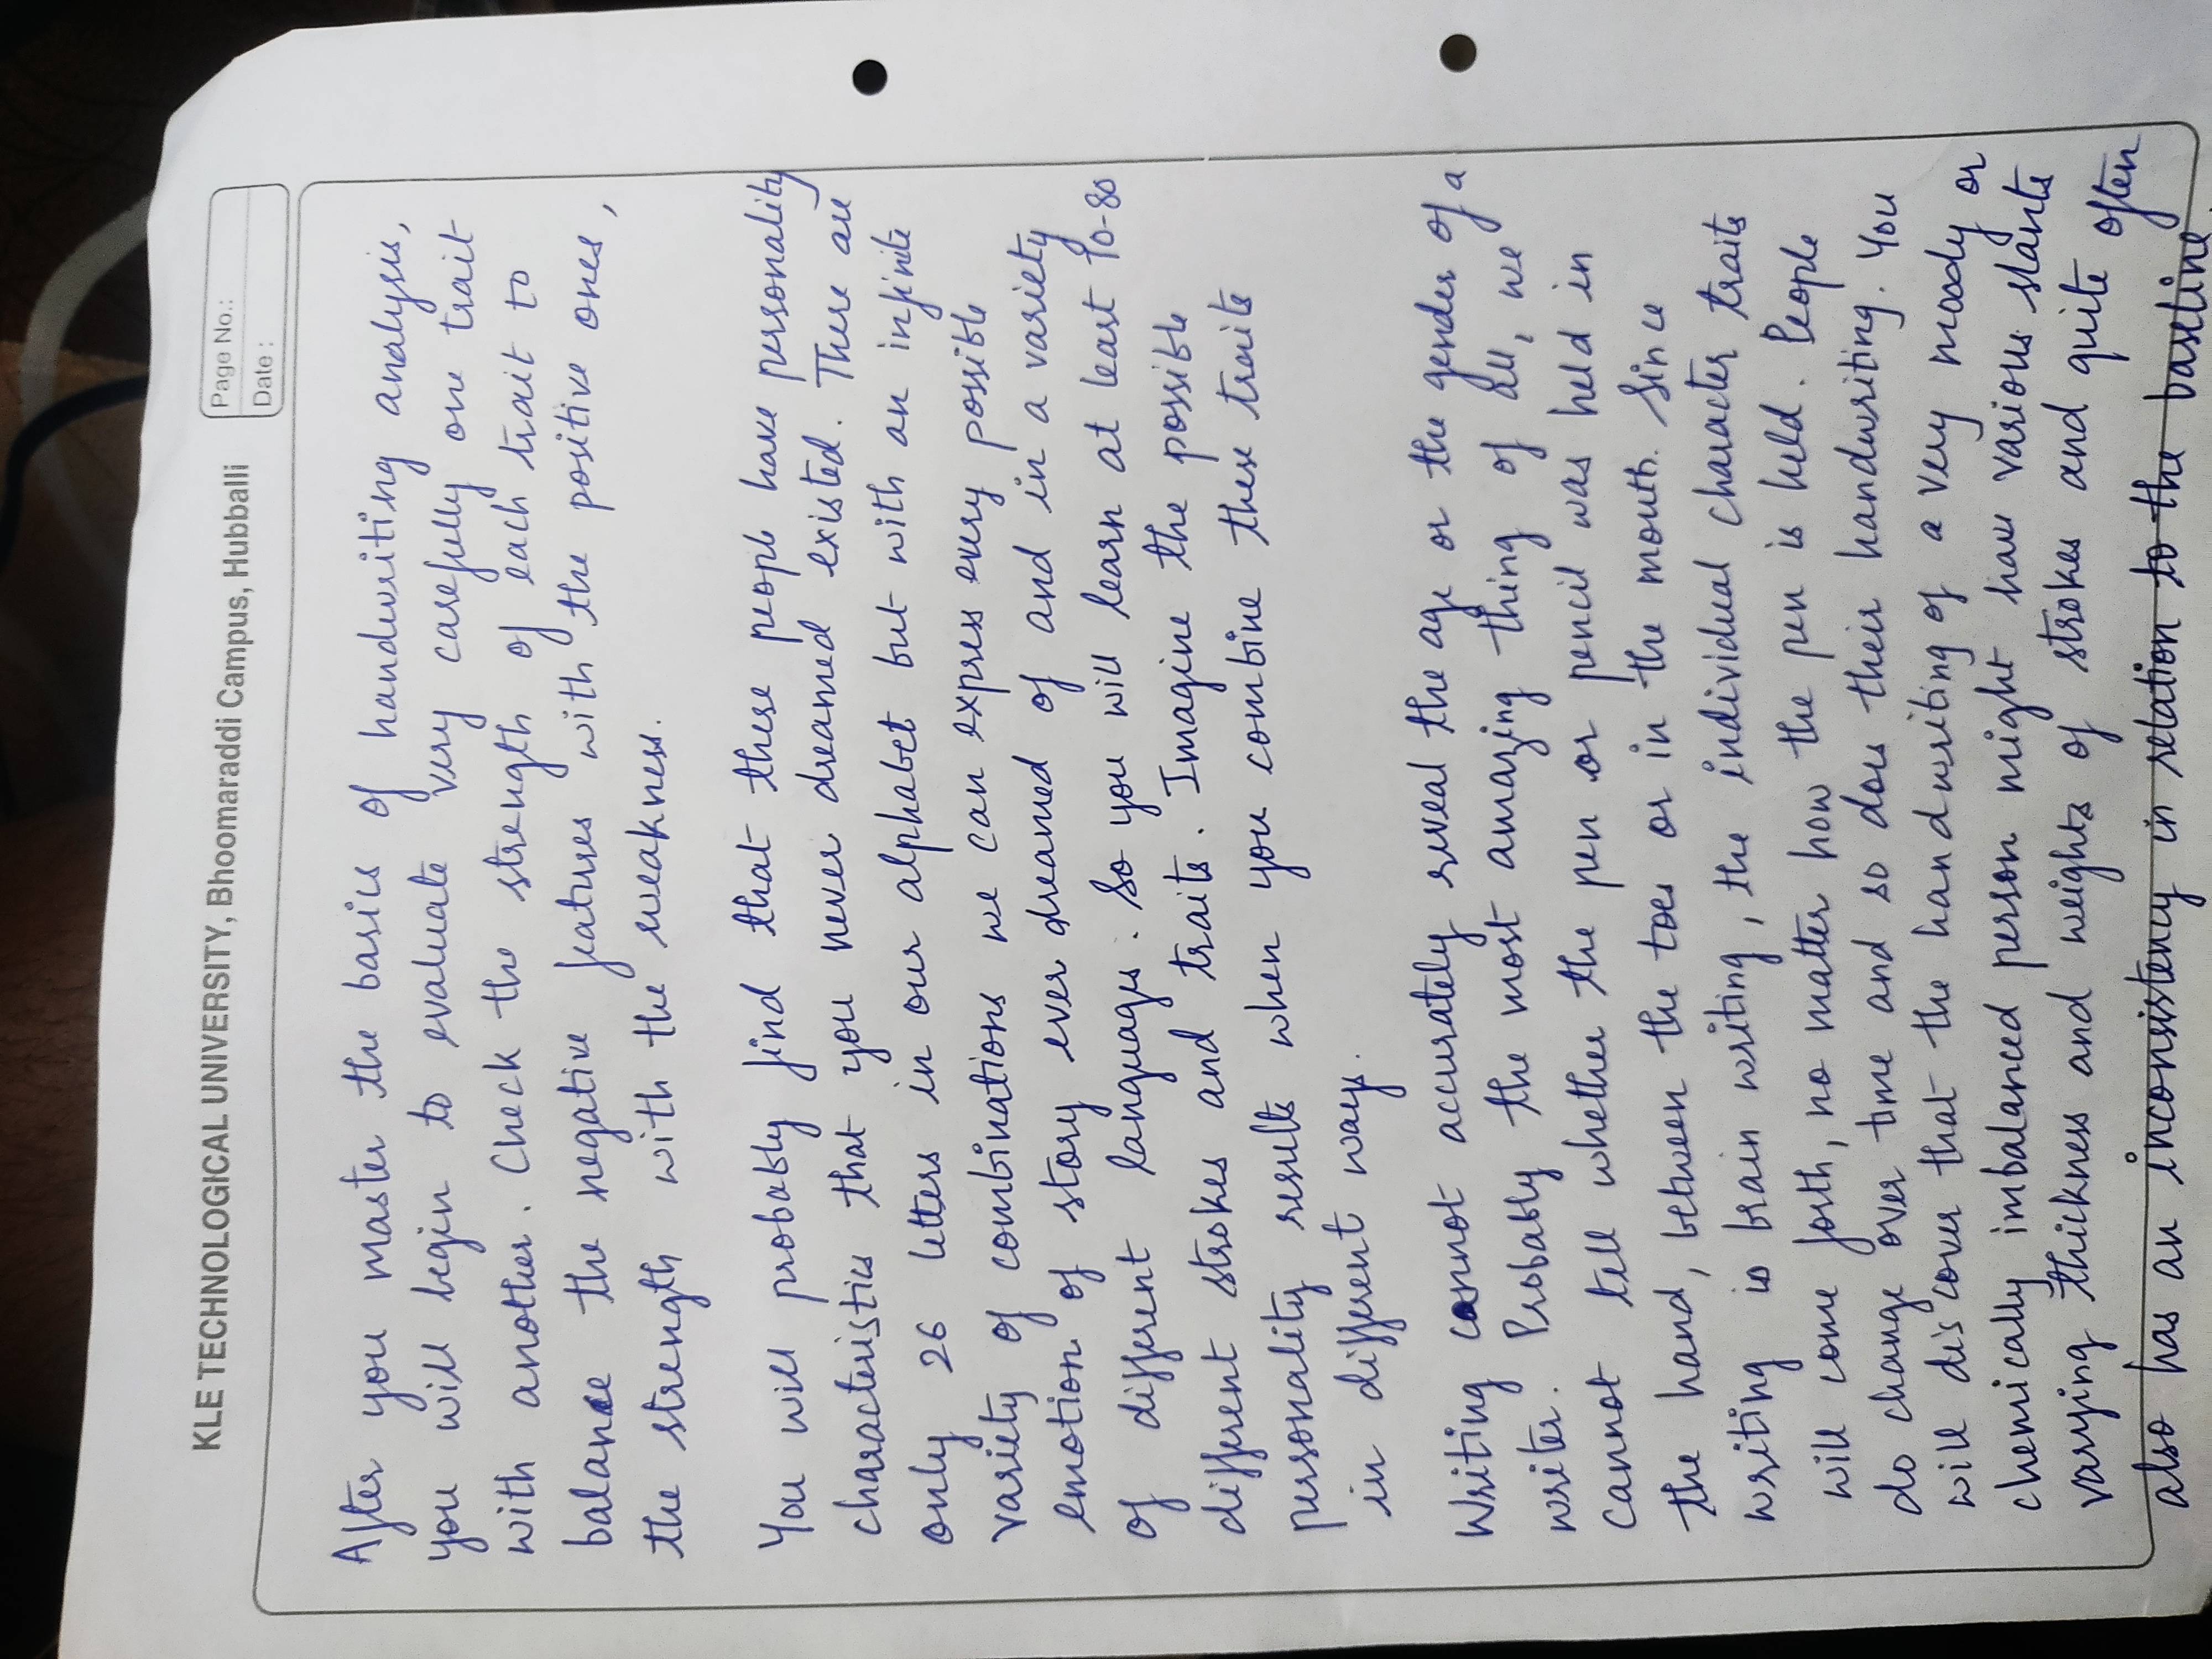 KLE TECHNOLOGICAL UNIVERSITY, Bhoomaraddi Campus, Hubballi
Page No.:
Date :
After you master the basics of handwriting analysis,
you will begin to evaluate very carefully one trait
with another. Check the strength of each trait to
balance the negative features with the positive ones,
the strength with the weakness.
You will probably find that these people have personality
characteristics that you never dreamed existed. There are
only 26 letters in our alphabet but with an infinite
variety of combinations we can express every possible
emotion of story ever dreamed of and in a variety
of different languages. So you will learn at least 70-80
different strokes and traits. Imagine the possible
personality results when you combine these traits
in different ways.
Writing cannot accurately reveal the age or the gender of a
writer. Probably the most amazing thing of all, we
cannot tell whether the pen or pencil was held in
the hand, between the toes or in the mouth. Since
writing is brain writing, the individual character traits
will come forth, no matter how the pen is held. People
do change over time and so does their handwriting. You
will discover that the handwriting of a very moody or
chemically imbalanced person might have various slants
varying thickness and weights of strokes and quite often
also has an inconsistency in relation to the baseline.